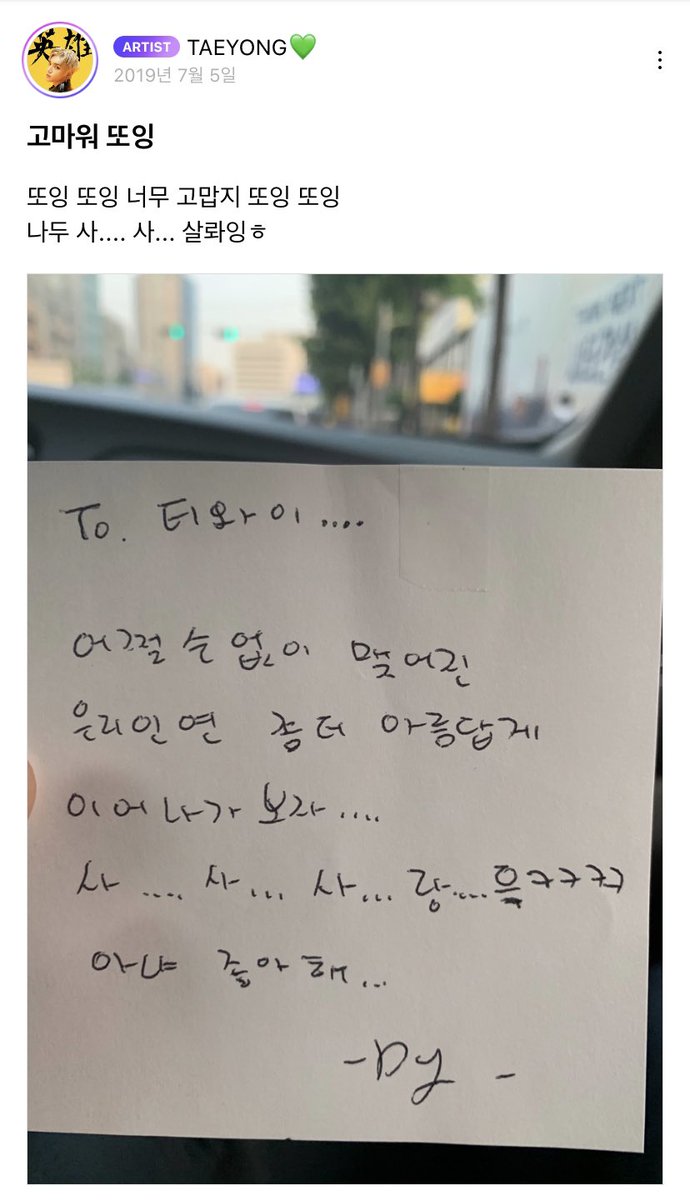 英雄
ARTIST TAEYONG💚
2019년 7월 5일
고마워 또잉
또잉 또잉 너무 고맙지 또잉 또잉
나두 사.... 사... 살롸잉ㅎ
To. 티와이....
어쩔 수 없이 맺어진
우리인연 좀더 아름답게
이어나가 보자....
사 .... 사... 사... 랑....윽ㅋㅋㅋㅋ
아냐 좋아해...
-Dy -